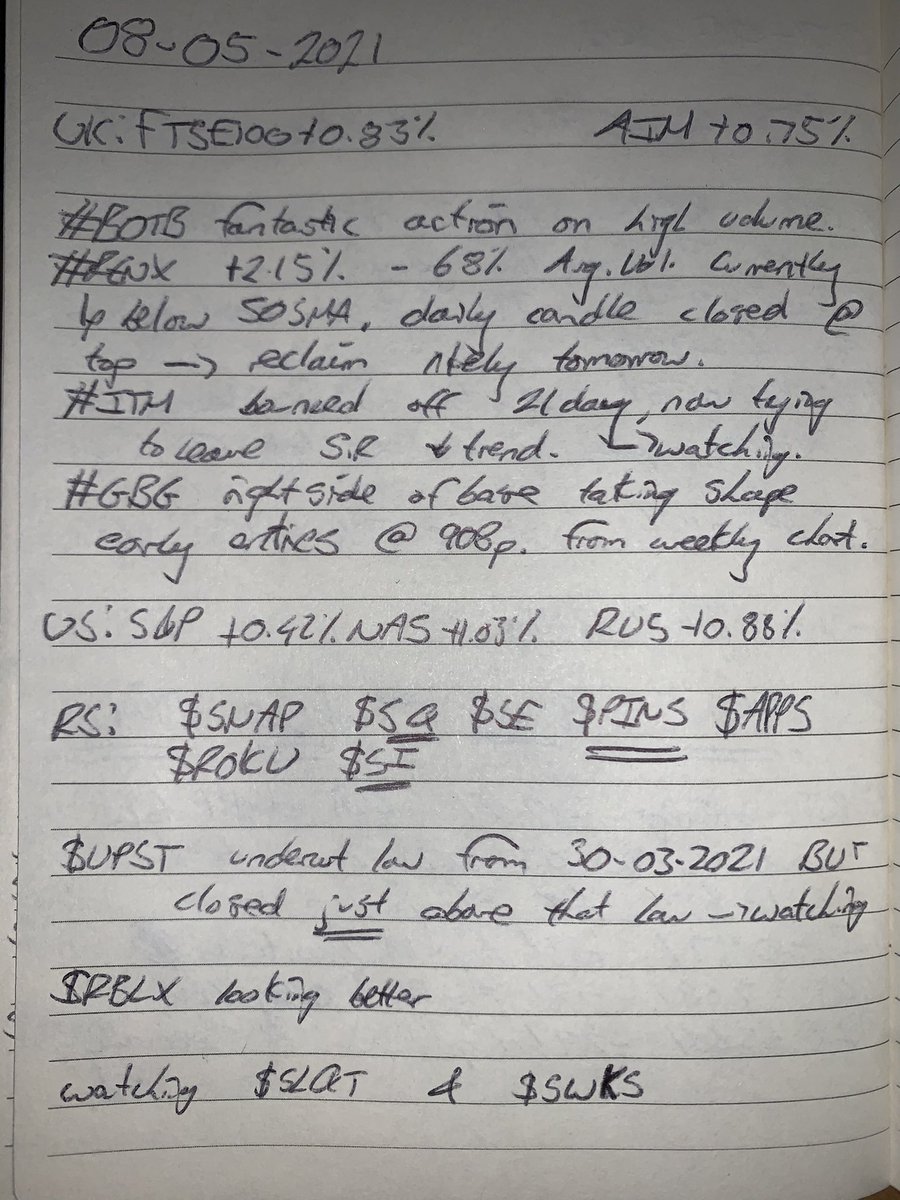 08-05-2021
UK: FTSE100 +0.83% AIM +0.75%
#BOTB fantastic action on high volume.
+2.15% - 68% Avg. Vol. Currently
↳ below 50SMA, daily candle closed @
top → reclaim likely tomorrow.
#ITM bounced off 21day, now trying
to leave S.R & trend. ↳ watching.
#GBG right side of base taking shape
early entries @ 908p. from weekly chart.
US: S&P +0.42% NAS +1.03% RUS +0.88%
RS: $SNAP $SQ $SE $PINS $APPS
$ROKU $SI
$UPST undercut low from 30-03-2021 BUT
closed just above that low → watching
$RBLX looking better
watching $SLQT & $SWKS